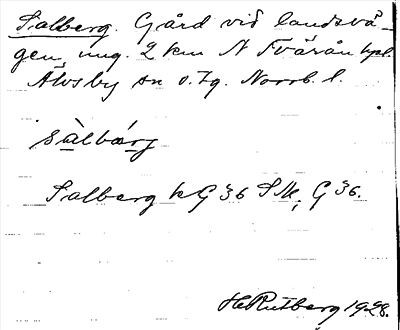 Salberg. Gård vid landsvä-
gen, ung. 2 km N Tvärån hpl.
Älvsby sn o. tg. Norrb. l.
sàlbárg
Salberg kG36 Sk, G36.
H Rutberg 1928.